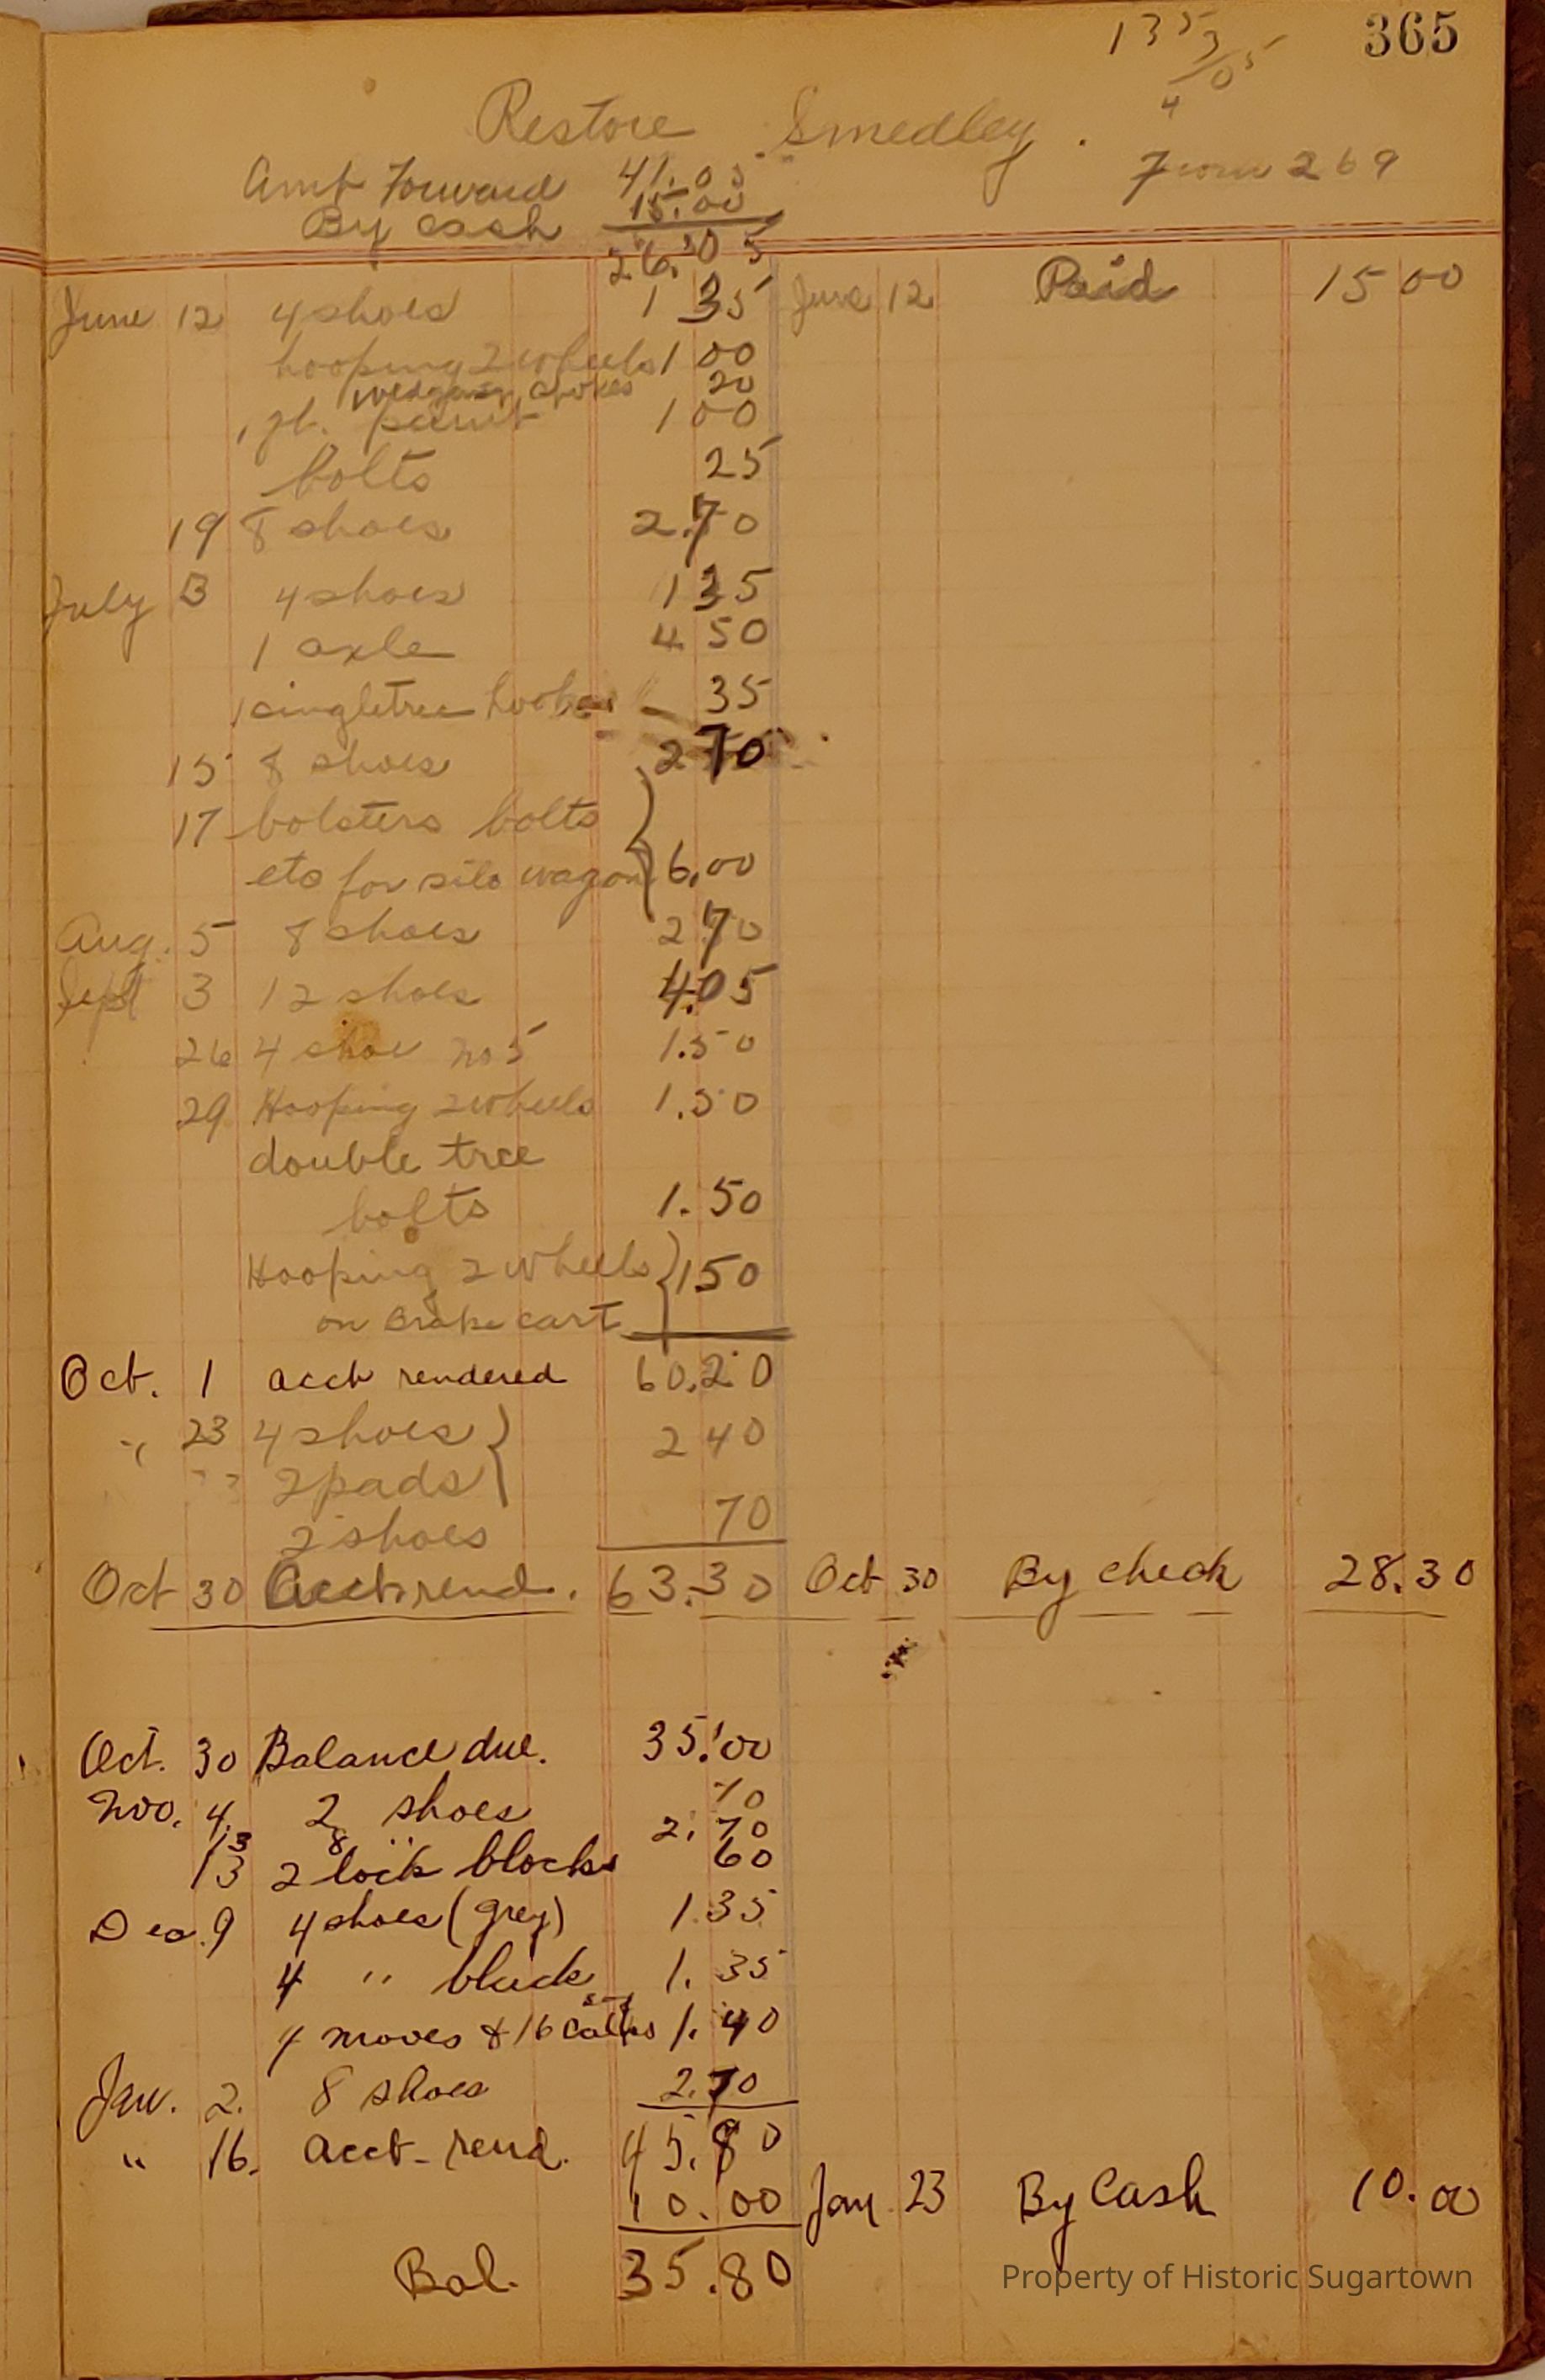 365
135
3/05
4
Restore Smedley.
From 269
Amt Forward 41.05
By Cash 15.00
26.05
June 12 4 shoes 1 35 June 12 Paid 15 00
hooping 2 wheels 1 00
Wedging spokes 20
1 gl. paint 1 00
bolts 25
19 8 shoes 2.70
July 3 4 shoes 1 35
1 axle 4 50
1 singletree hooks 35
15 8 shoes 2 70
17 bolsters bolts
etc for silo wagon 6.00
Aug. 5 8 shoes 2 70
Sept 3 12 shoes 4.05
26 4 shoe no 5 1.50
29 Hooping 2 wheels 1.50
double tree
bolts 1.50
Hooping 2 wheels 1 50
on cart
Oct. 1 acct rendered 60.20
" 23 4 shoes 2 40
2 pads
2 shoes 70
Oct 30 Acct rend. 63.30 Oct 30 By check 28.30
Oct. 30 Balance due. 35.00
Nov. 4. 2 shoes 70
13 8 " 2.70
13 2 lock blocks 60
Dec. 9 4 shoes (grey) 1.35
4 " black 1.35
4 moves & 16 calks 1.40
Jan. 2. 8 shoes 2.70
" 16. acct. rend. 45.80
10.00 Jan 23 By Cash 10.00
Bal. 35.80
Property of Historic Sugartown